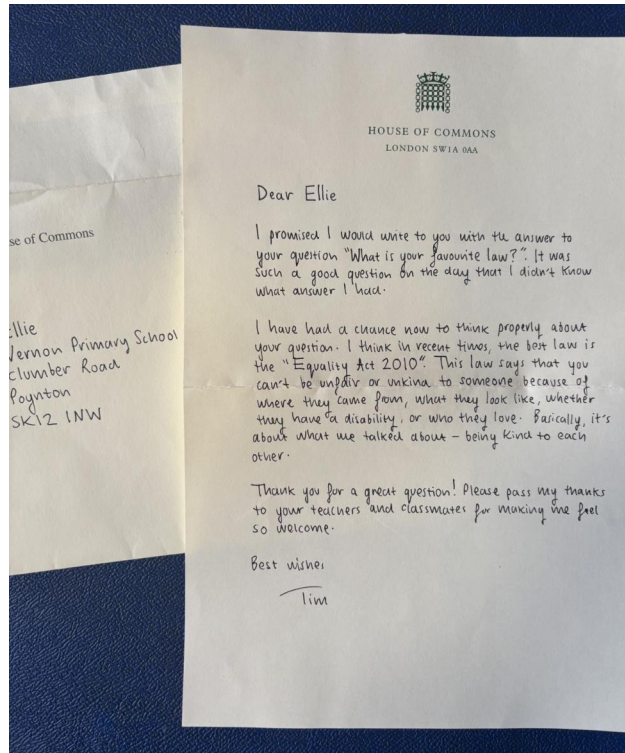 HOUSE OF COMMONS
LONDON SW1A 0AA
Dear Ellie
I promised I would write to you with the answer to
your question "What is your favourite law?". It was
such a good question on the day that I didn't know
what answer I had.
I have had a chance now to think properly about
your question. I think in recent times, the best law is
the "Equality Act 2010". This law says that you
can't be unfair or unkind to someone because of
where they came from, what they look like, whether
they have a disability, or who they love. Basically, it's
about what we talked about – being kind to each
other.
Thank you for a great question! Please pass my thanks
to your teachers and classmates for making me feel
so welcome.
Best wishes
Tim
se of Commons
llie
Vernon Primary School
Clumber Road
Poynton
SK12 1NW